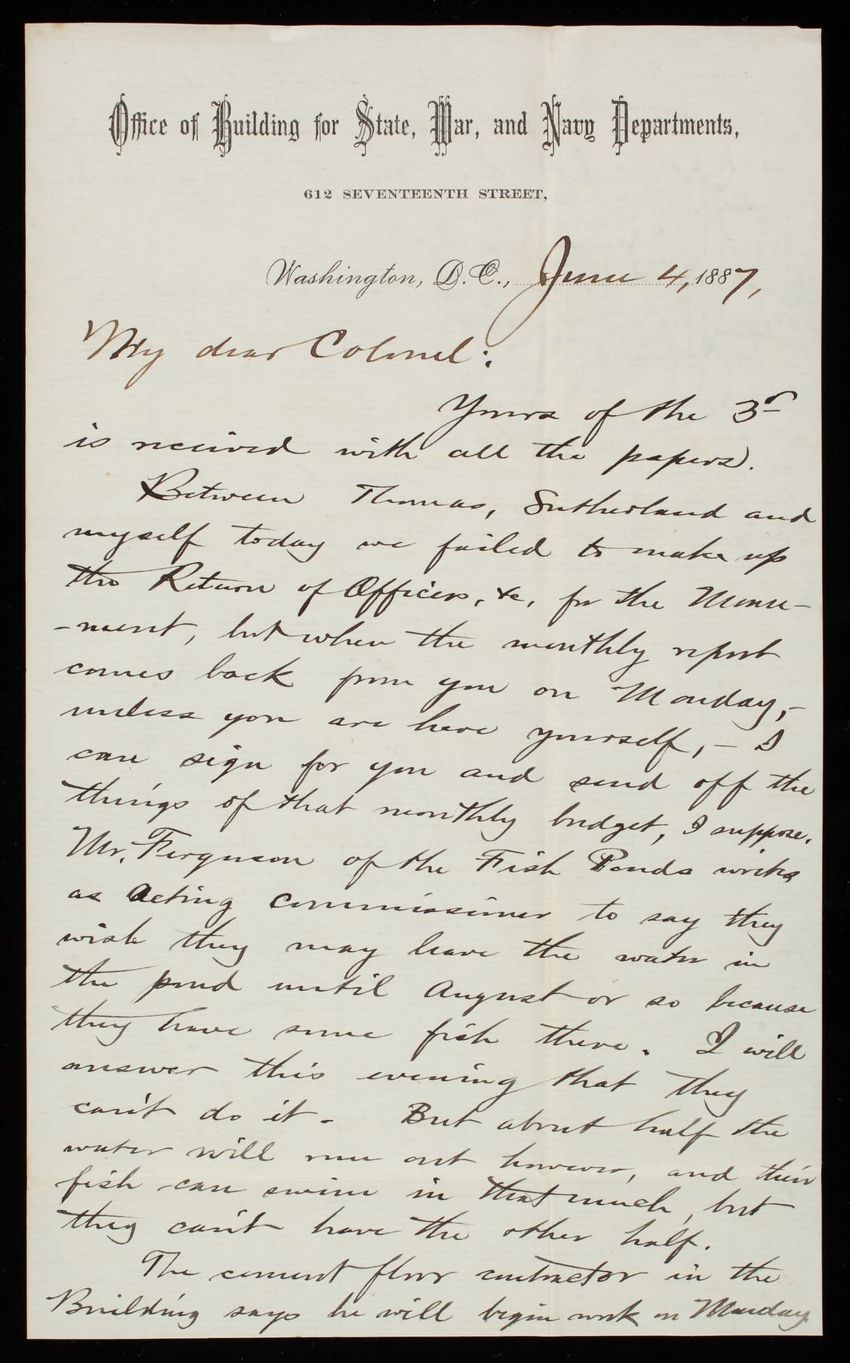 Office of Building for State, War, and Navy Departments,
612 SEVENTEENTH STREET,
Washington, D.C., June 4, 1887,
My dear Colonel:
Yours of the 3d
is received with all the papers.
Between Thomas, Sutherland and
myself today we failed to make up
the Return of Officers, &c, for the Monu-
-ment, but when the monthly report
comes back from you on Monday,-
unless you are here yourself,- I
can sign for you and send off the
things of that monthly budget, I suppose.
Mr. Ferguson of the Fish Ponds writes
as Acting Commissioner to say they
wish they may have the water in
the pond until August or so because
they have some fish there. I will
answer this evening that they
can't do it - But about half the
water will run out however, and their
fish can swim in that much, but
they can't have the other half.
The cement floor contractor in the
Building says he will begin work on Monday